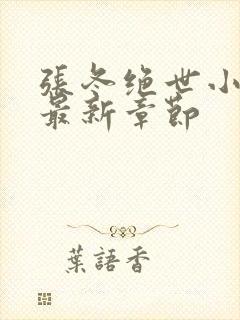 張冬绝世小
最新章節
葉語香